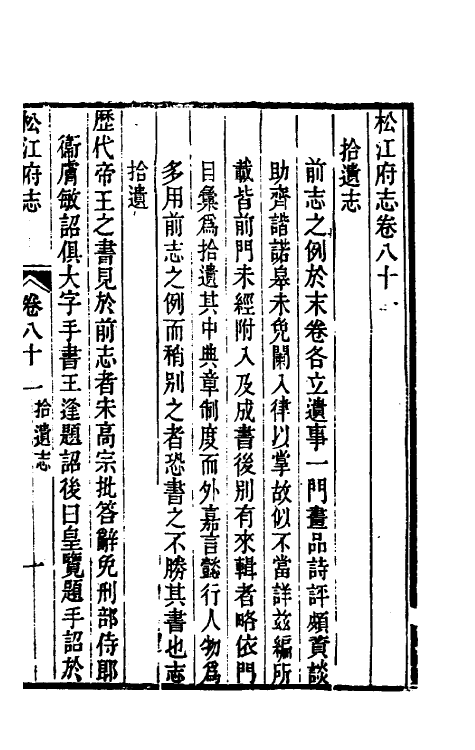 松江府志卷八十一
拾遺志
前志之例於末卷各立遺事一門畫品詩評頗資談
助齊諧諾皋未免闌入律以掌故似不當詳兹編所
載皆前門未經附入及成書後別有來輯者略依門
目彙爲拾遺其中典章制度而外嘉言懿行人物爲
多用前志之例而稍別之者恐書之不勝其書也志
拾遺
歷代帝王之書見於前志者宋高宗批答辭免刑部侍郎
衞膚敏詔俱大字手書王逢題詔後曰皇覽題手詔於
松江府志 卷八十一 拾遺志 一